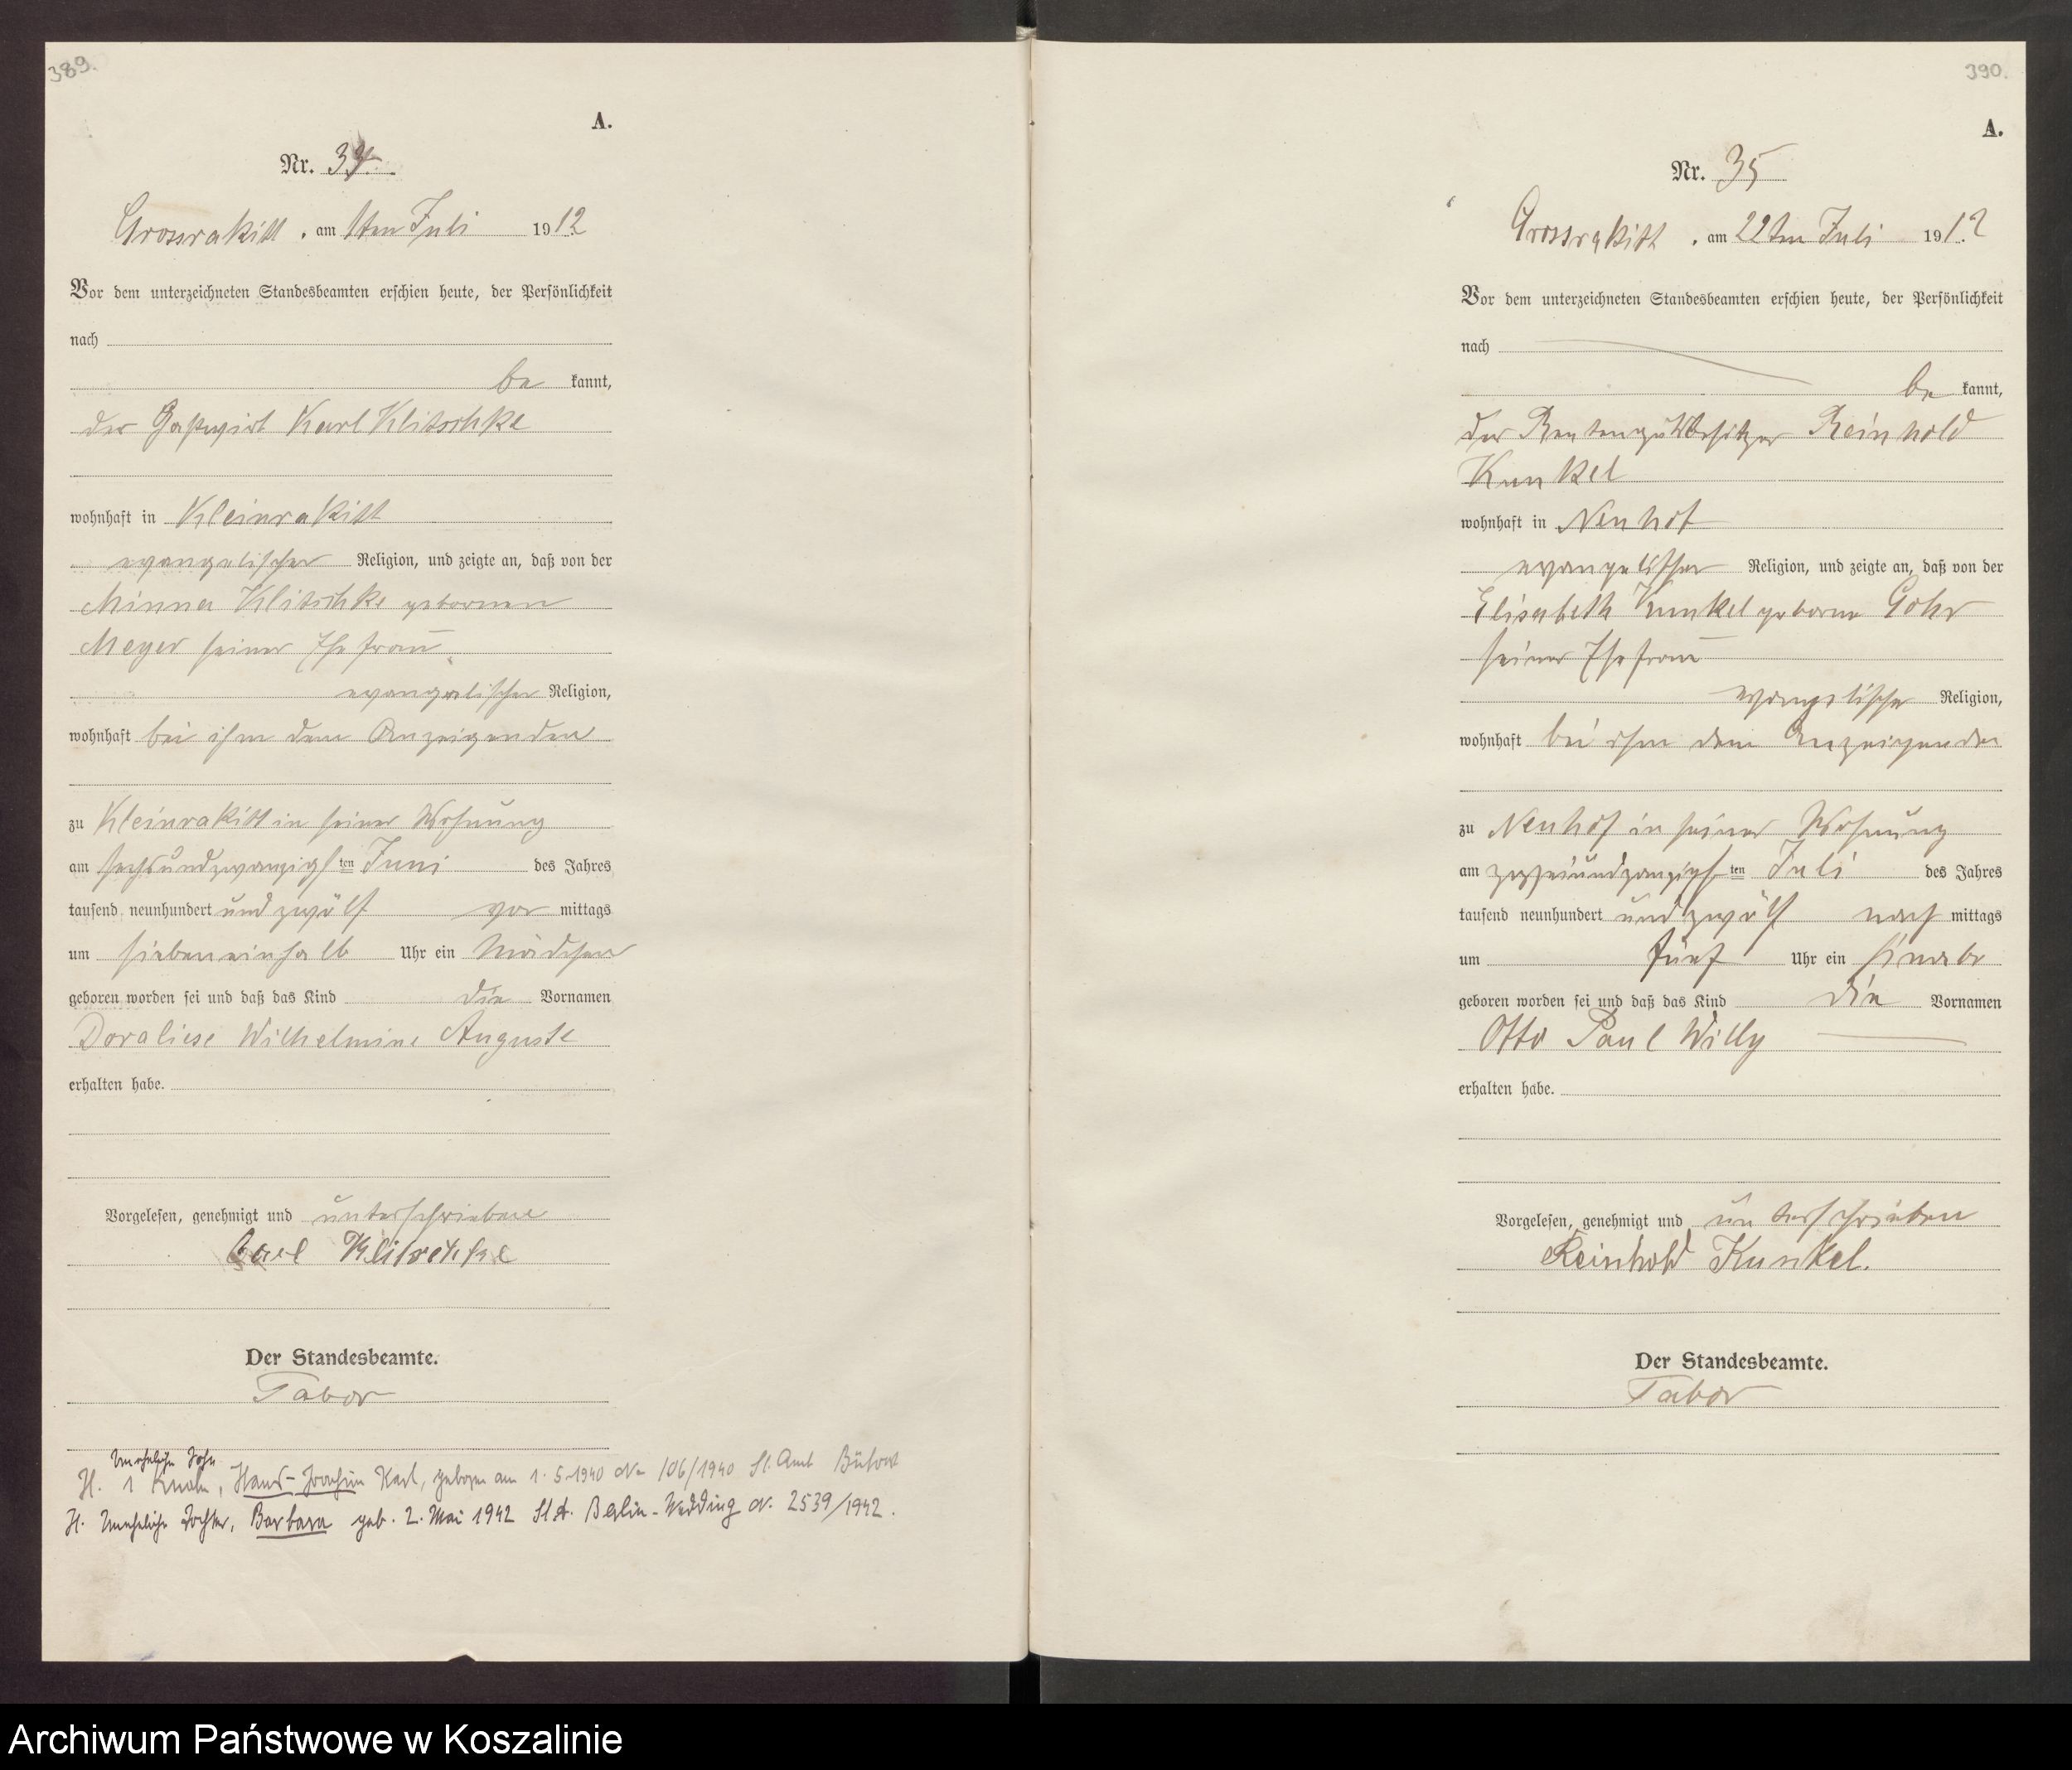 389.
A.
Nr. 34.
Grossrakitt, am 1ten Juli 1912
Vor dem unterzeichneten Standesbeamten erschien heute, der Persönlichkeit
nach
be kannt,
der Gastwirt Karl Klitschke
wohnhaft in Kleinrakitt
evangelischer Religion, und zeigte an, daß von der
Minna Klitschke gebornen
Meyer seiner Ehefrau
evangelischer Religion,
wohnhaft bei ihm dem Anzeigenden
zu Kleinrakitt in seiner Wohnung
am sechsundzwanzigsten Juni des Jahres
tausend neunhundert und zwölf vor mittags
um siebeneinhalb Uhr ein Mädchen
geboren worden sei und daß das Kind die Vornamen
Doraliese Wilhelmine Auguste
erhalten habe.
Vorgelesen, genehmigt und unterschrieben
Carl Klitschke
Der Standesbeamte.
Tabor
Unehelicher Sohn
H. 1 Knabe, Hans-Joachim Karl, geboren am 1.5.1940 Nr 106/1940 St. Amt Bütow
H. Uneheliche Tochter, Barbara geb. 2. Mai 1942 St.A. Berlin-Wedding Nr. 2539/1942.
390.
A.
Nr. 35
Grossrakitt, am 22ten Juli 1912
Vor dem unterzeichneten Standesbeamten erschien heute, der Persönlichkeit
nach
be kannt,
der Rentengutsbesitzer Reinhold
Kunkel
wohnhaft in Neuhof
evangelischer Religion, und zeigte an, daß von der
Elisabeth Kunkel geborne Gohr
seiner Ehefrau
evangelischer Religion,
wohnhaft bei ihm dem Anzeigenden
zu Neuhof in seiner Wohnung
am zweiundzwanzigsten Juli des Jahres
tausend neunhundert und zwölf nach mittags
um fünf Uhr ein Knabe
geboren worden sei und daß das Kind die Vornamen
Otto Paul Willy
erhalten habe.
Vorgelesen, genehmigt und unterschrieben
Reinhold Kunkel.
Der Standesbeamte.
Tabor
Archiwum Państwowe w Koszalinie